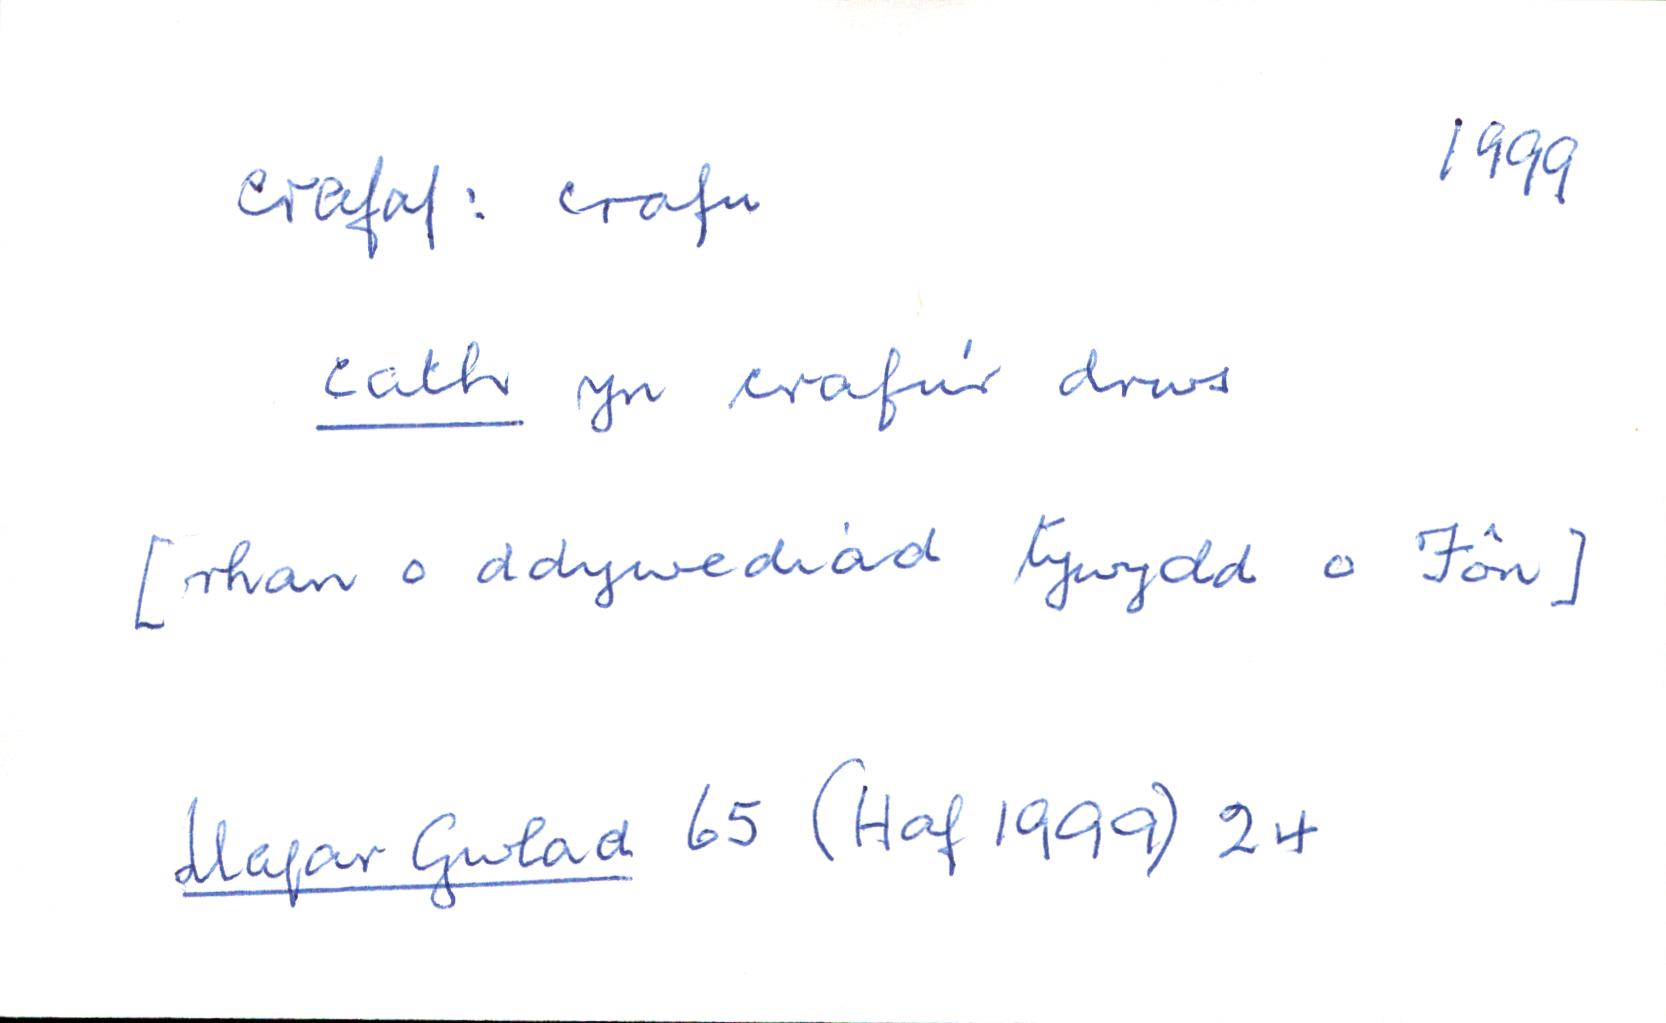 crafaf: crafu 1999
cath yn crafu'r drws
[rhan o ddywediad tywydd o Fôn]
Llafar Gwlad 65 (Haf 1999) 24